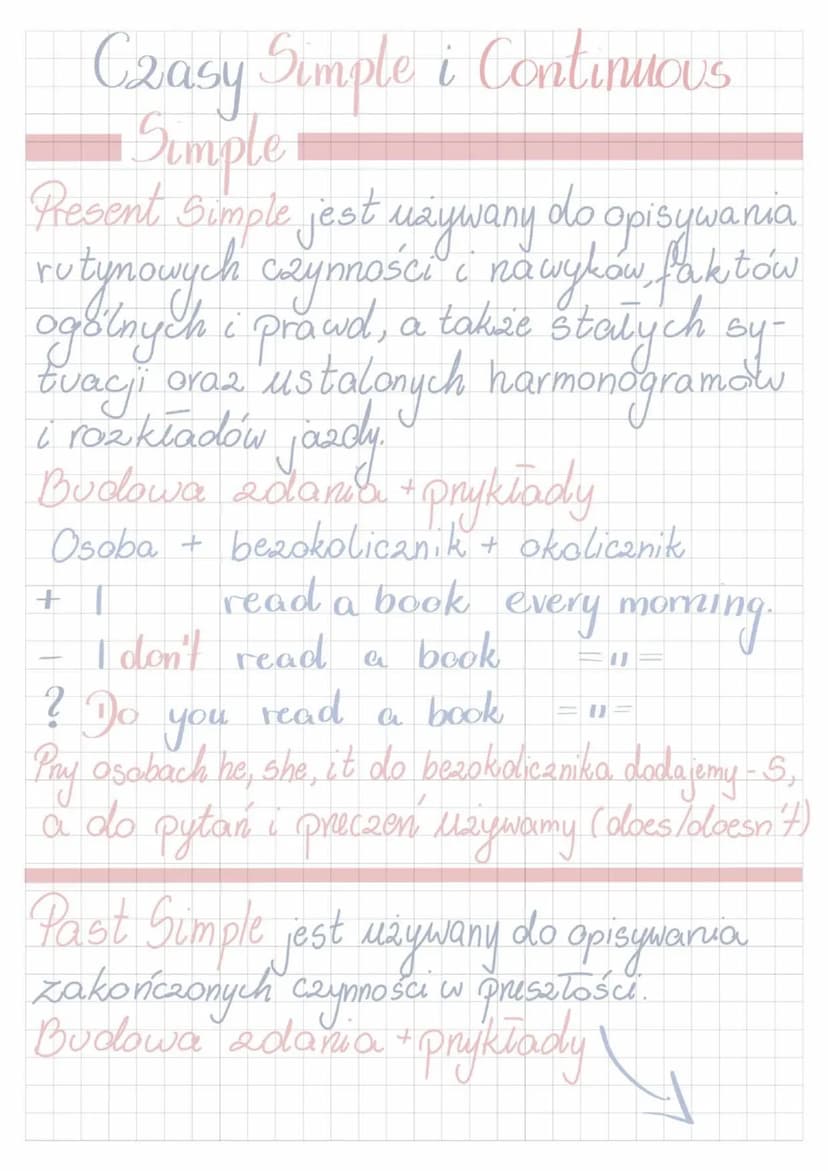 Czasy Simple i Continuous
Simple
Present Simple jest używany do opisywania
rutynowych czynności i nawyków, faktów
ogólnych i prawd, a także stałych sy-
tuacji oraz ustalonych harmonogramów
i rozkładów jazdy.
Budowa zdania + przykłady
Osoba + bezokolicznik + okolicznik
+ I read a book every morning.
- I don't read a book =||=
? Do you read a book =||=
Przy osobach he, she, it do bezokolicznika dodajemy -s,
a do pytań i przeczeń używamy (does/doesn't)
Past Simple jest używany do opisywania
zakończonych czynności w przeszłości.
Budowa zdania + przykłady